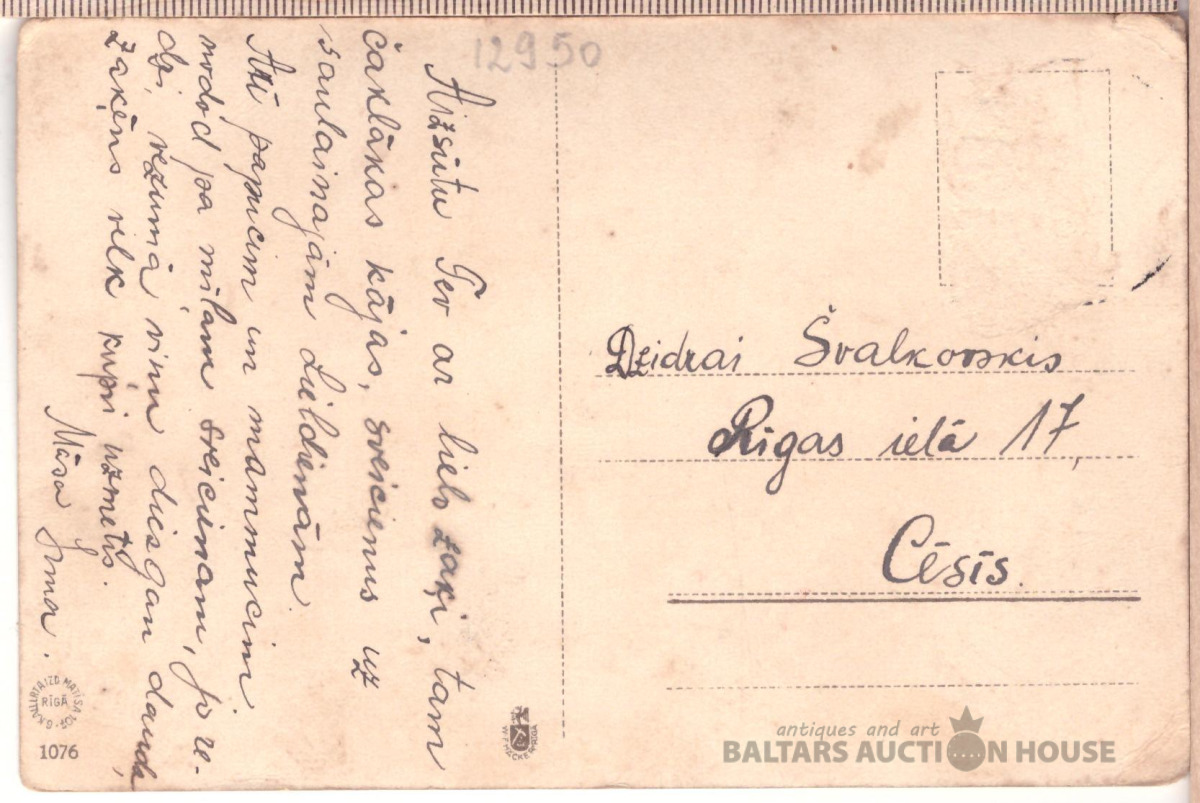 12950
Aizsūtu Tev ar lielo zaķi, tam
čaklākas kājas, sveicienus uz
saulainajām Lieldienām.
Arī papucim un mammucim
nodod pa mīļam sveicienam, jo re-
dzi, vezumā viņu diezgan daudz,
zaķēns velk kupri uzmetis.
Māsa Irma.
Dzidrai Švalkovskis
Rīgas ielā 17,
Cēsīs.
RĪGĀ
1076
antiques and art
BALTARS AUCTION HOUSE